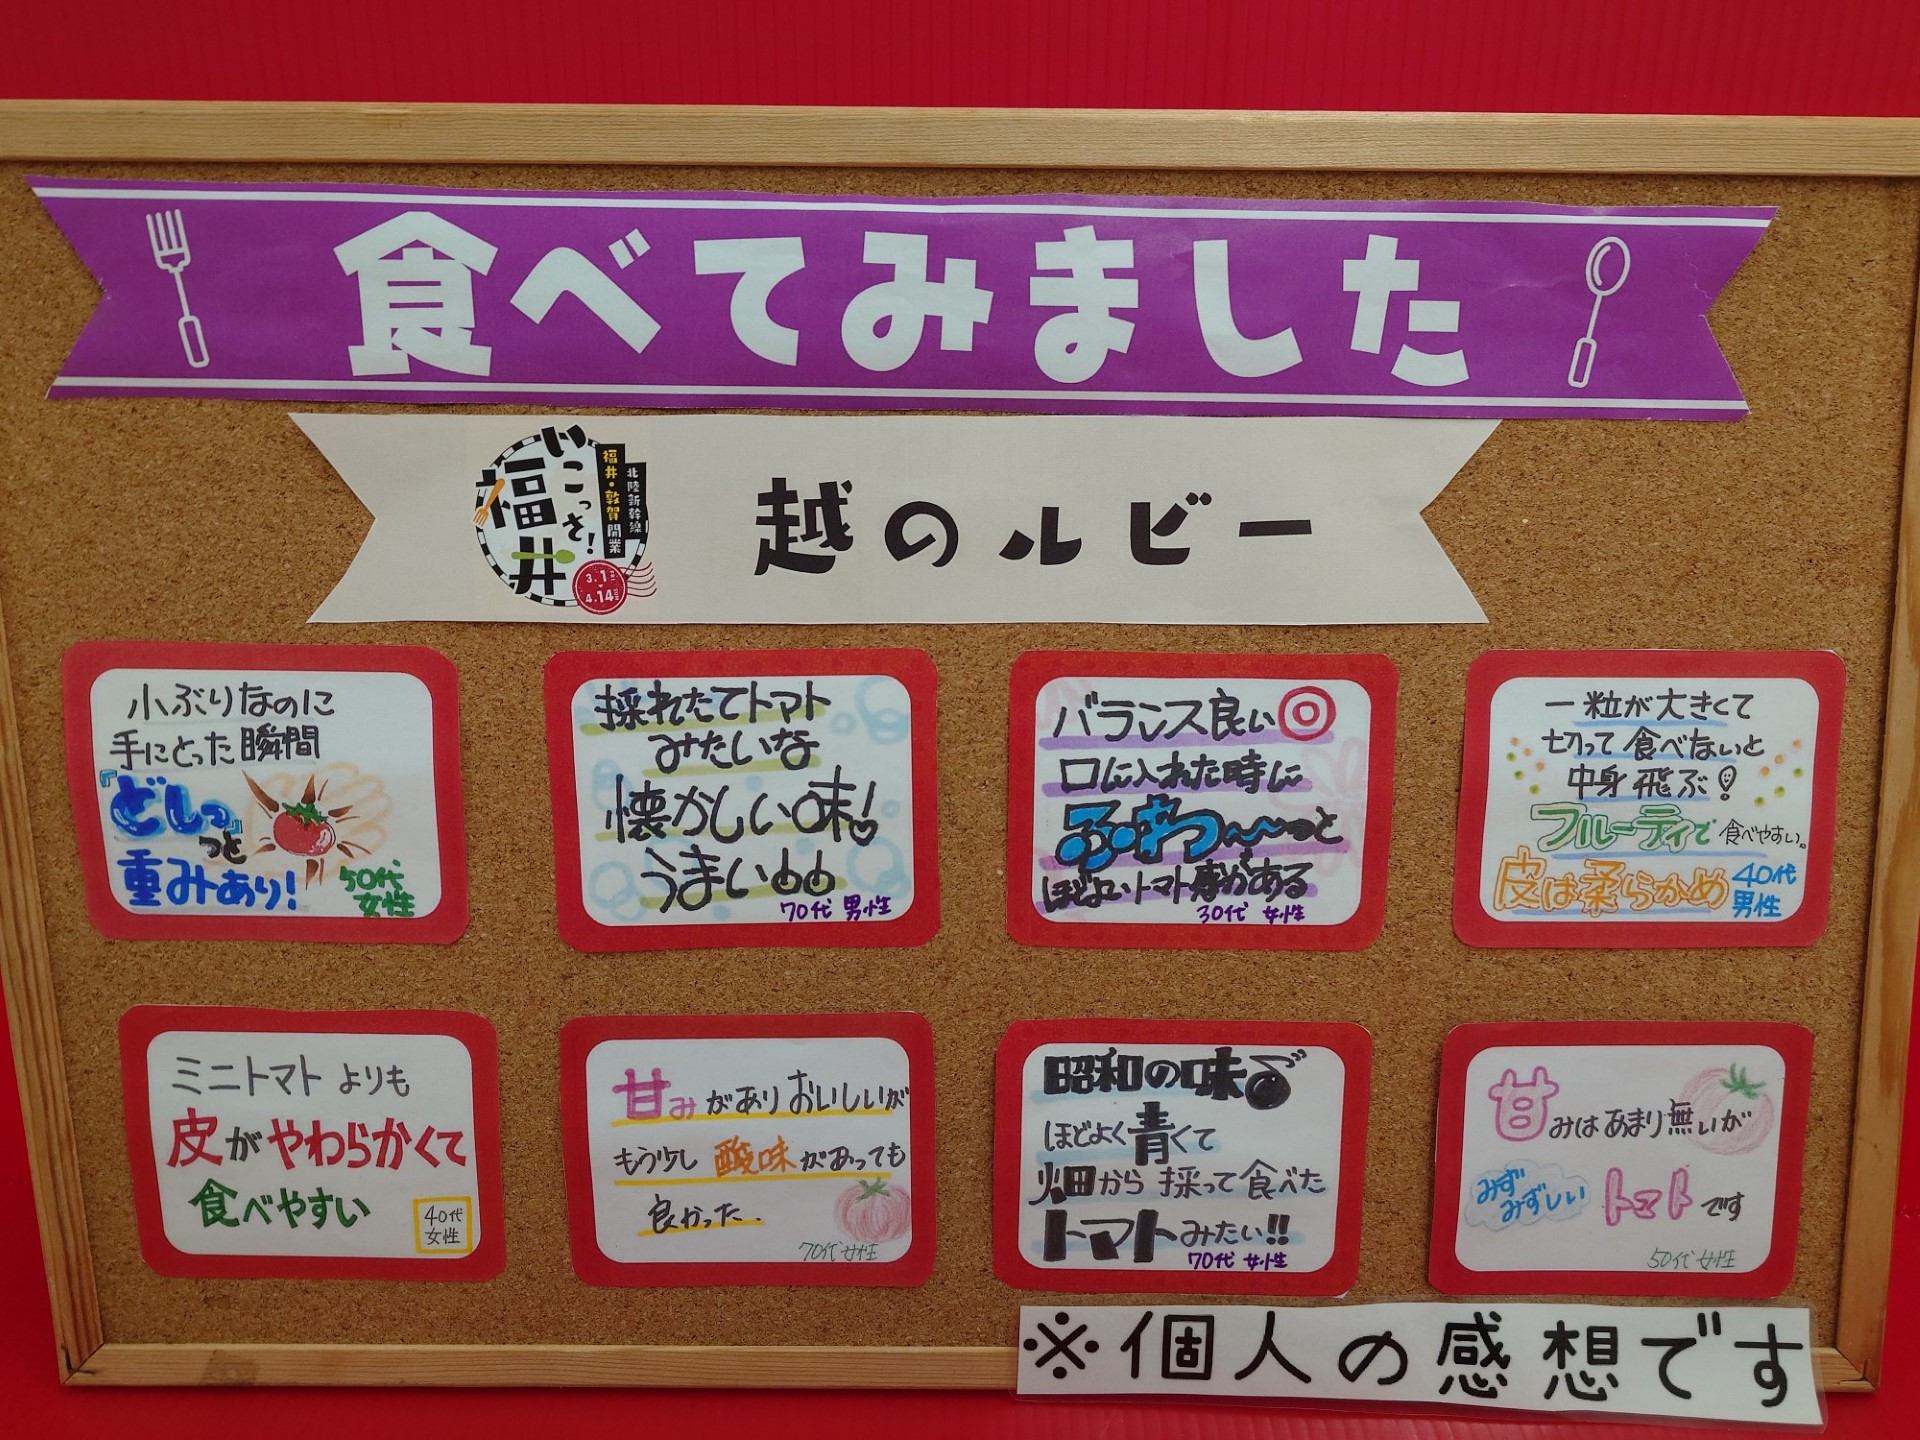 食べてみました
いこっさ!
福井
北陸新幹線
福井・敦賀開業
3.1
4.14
越のルビー
小ぶりなのに
手にとった瞬間
『どしっ』
っと
重みあり!
50代
女性
採れたてトマト
みたいな
懐かしい味!
うまい
70代 男性
バランス良い◎
口に入れた時に
ふわっ〜〜っと
ほどよいトマト感がある
30代 女性
一粒が大きくて
切って食べないと
中身飛ぶ!
フルーティで食べやすい。
皮は柔らかめ
40代
男性
ミニトマトよりも
皮がやわらかくて
食べやすい
40代
女性
甘みがありおいしいが
もう少し酸味があっても
良かった.
70代女性
昭和の味
ほどよく青くて
畑から採って食べた
トマトみたい!!
70代 女性
甘みはあまり無いが
みず
みずしい
トマトです
50代女性
※個人の感想です